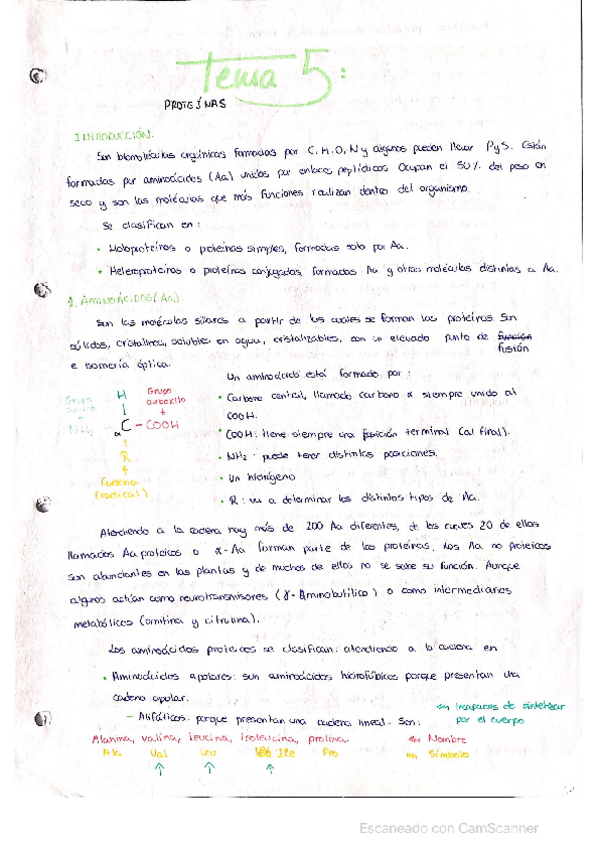 Tema 5:
PROTEÍNAS
INTRODUCCIÓN.
Son biomoléculas orgánicas formadas por C, H, O, N y algunas pueden llevar P y S. Están
formadas por aminoácidos (Aa) unidos por enlaces peptídicos. Ocupan el 50% del peso en
seco y son las moléculas que más funciones realizan dentro del organismo.
Se clasifican en:
• Holoproteínas o proteínas simples, formadas solo por Aa.
• Heteroproteínas o proteínas conjugadas, formadas Aa y otras moléculas distintas a Aa.
1. AMINOÁCIDOS (Aa).
Son las moléculas sillares a partir de las cuales se forman las proteínas. Son
sólidos, cristalinos, solubles en agua, cristalizables, con un elevado punto de función
fusión
e isomería óptica.
Un aminoácido está formado por:
H
Grupo
carboxilo
Grupo
NH₂ - C - COOH
α
R
Cadena
(radical)
• Carbono central, llamado carbono α siempre unido al
COOH.
• COOH: tiene siempre una posición terminal (al final).
• NH₂: puede tener distintas posiciones.
• Un hidrógeno
• R: va a determinar los distintos tipos de Aa.
Atendiendo a la cadena hay más de 200 Aa diferentes, de los cuales 20 de ellos
llamados Aa proteicos o α-Aa forman parte de las proteínas. Los Aa no proteicos
son abundantes en las plantas y de muchos de ellos no se sabe su función. Aunque
algunos actúan como neurotransmisores (γ-Aminobutílico) o como intermediarios
metabólicos (ornitina y citrulina).
Los aminoácidos proteicos se clasifican: atendiendo a la cadena en
• Aminoácidos apolares: son aminoácidos hidrofóbicos porque presentan una
cadena apolar.
↪ incapaces de sintetizar
por el cuerpo
- Alifáticos: porque presentan una cadena lineal. Son:
Alanina, valina, leucina, isoleucina, prolina. Nombre
Ala Val Leu Ile Pro Símbolo
↑ ↑ ↑
Escaneado con CamScanner